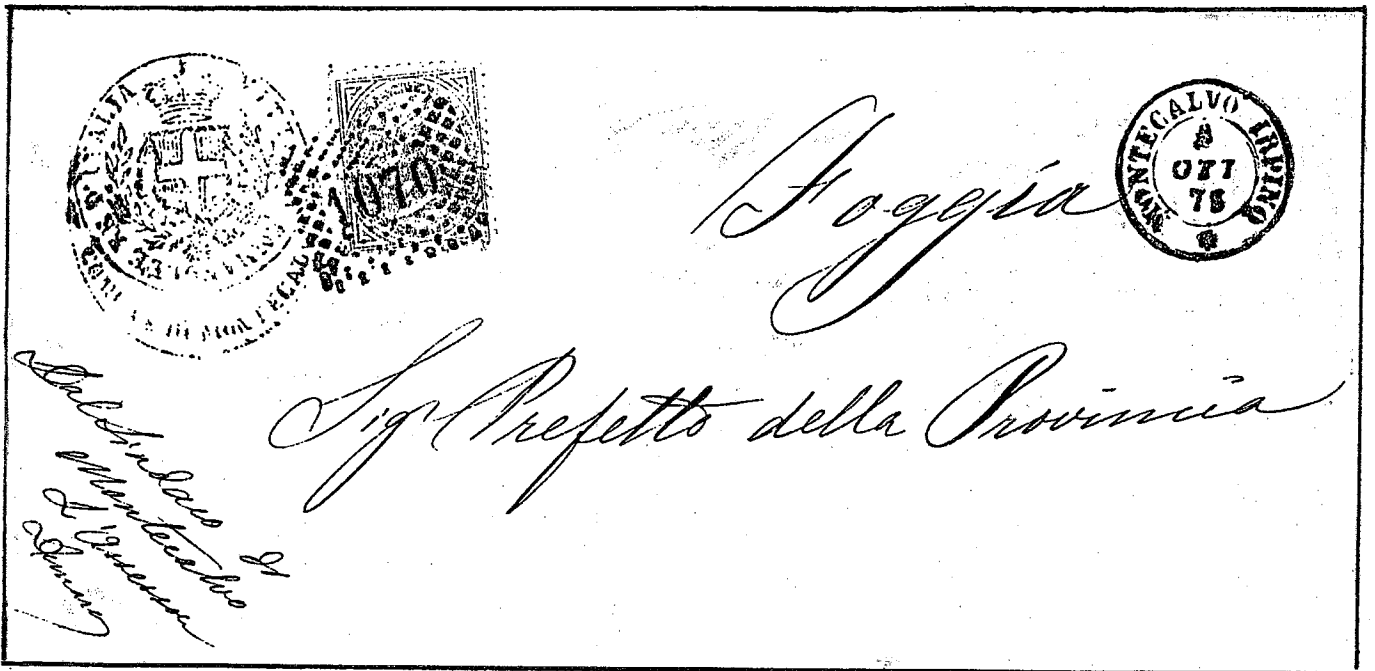 1070
MONTECALVO IRPINO
8
OTT
78
Foggia
Sig.r Prefetto della Provincia
Dal Sindaco di
Montecalvo
L'Assessore